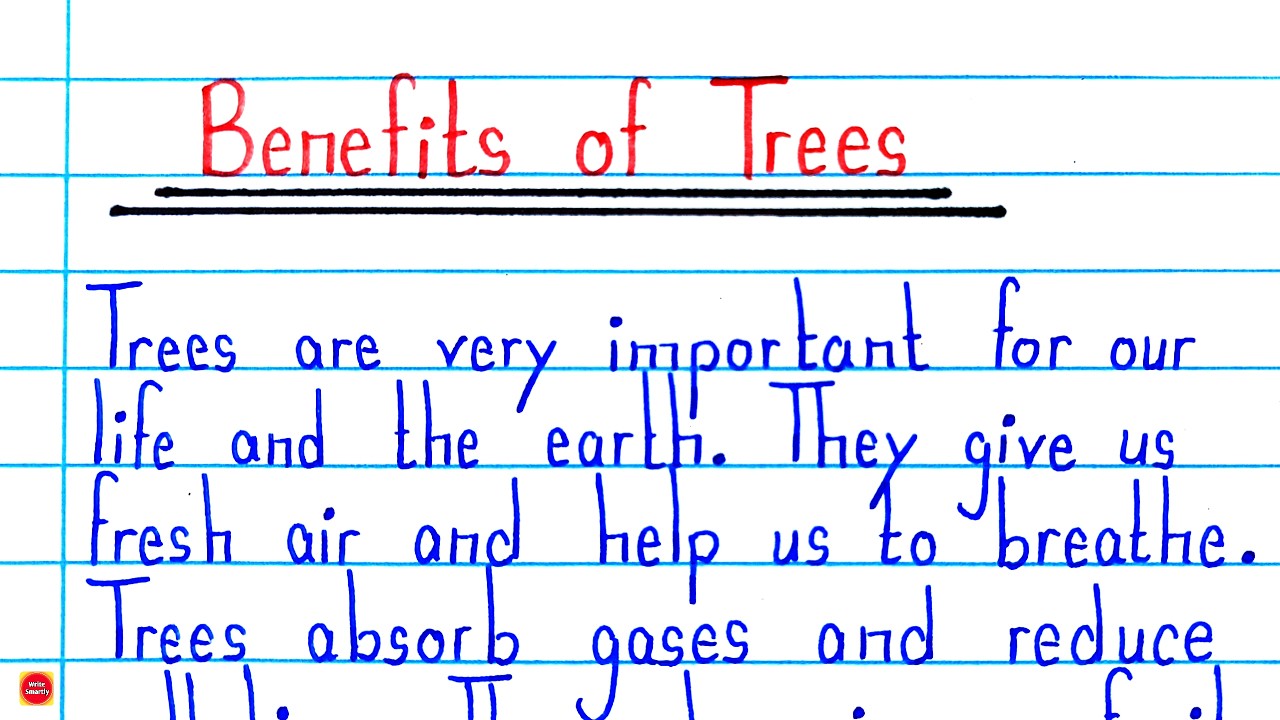 Benefits of Trees
Trees are very important for our
life and the earth. They give us
fresh air and help us to breathe.
Trees absorb gases and reduce
Write
Smartly